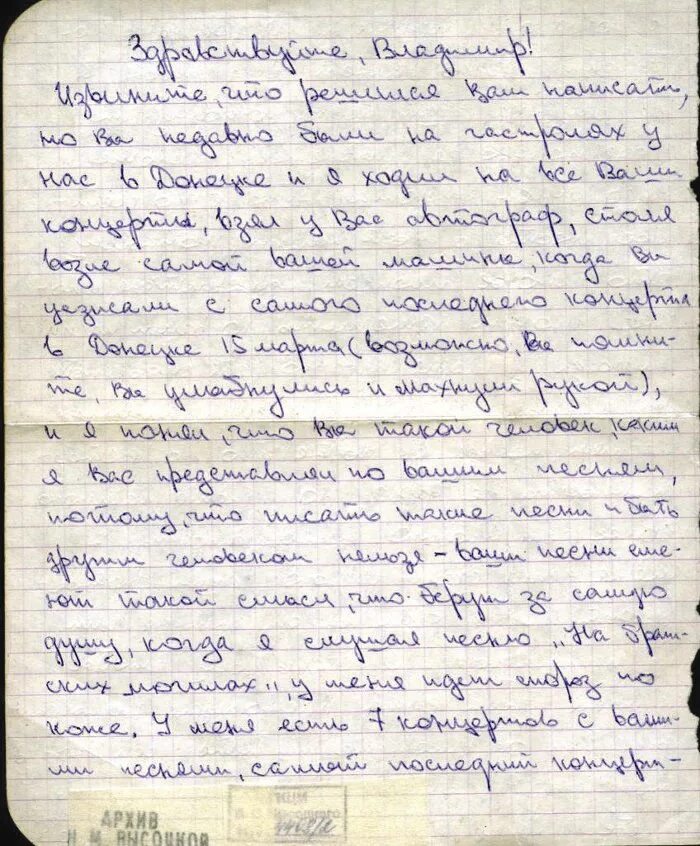 Здравствуйте, Владимир!
Извините, что решился Вам написать,
но Вы недавно были на гастролях у
нас в Донецке и я ходил на все Ваши
концерты, взял у Вас автограф, стоял
возле самой вашей машины, когда Вы
уезжали с самого последнего концерта
в Донецке 15 марта (возможно, Вы помни-
те, Вы улыбнулись и махнули рукой),
и я понял, что Вы такой человек, каким
я Вас представлял по вашим песням,
потому, что писать такие песни и быть
другим человеком нельзя – ваши песни име-
ют такой смысл, что берут за самую
душу, когда я слушал песню „На брат-
ских могилах", у меня идет мороз по
коже. У меня есть 7 концертов с ваши-
ми песнями, самый последний концерт –
АРХИВ
Н. М. ВЫСОЦКОЙ